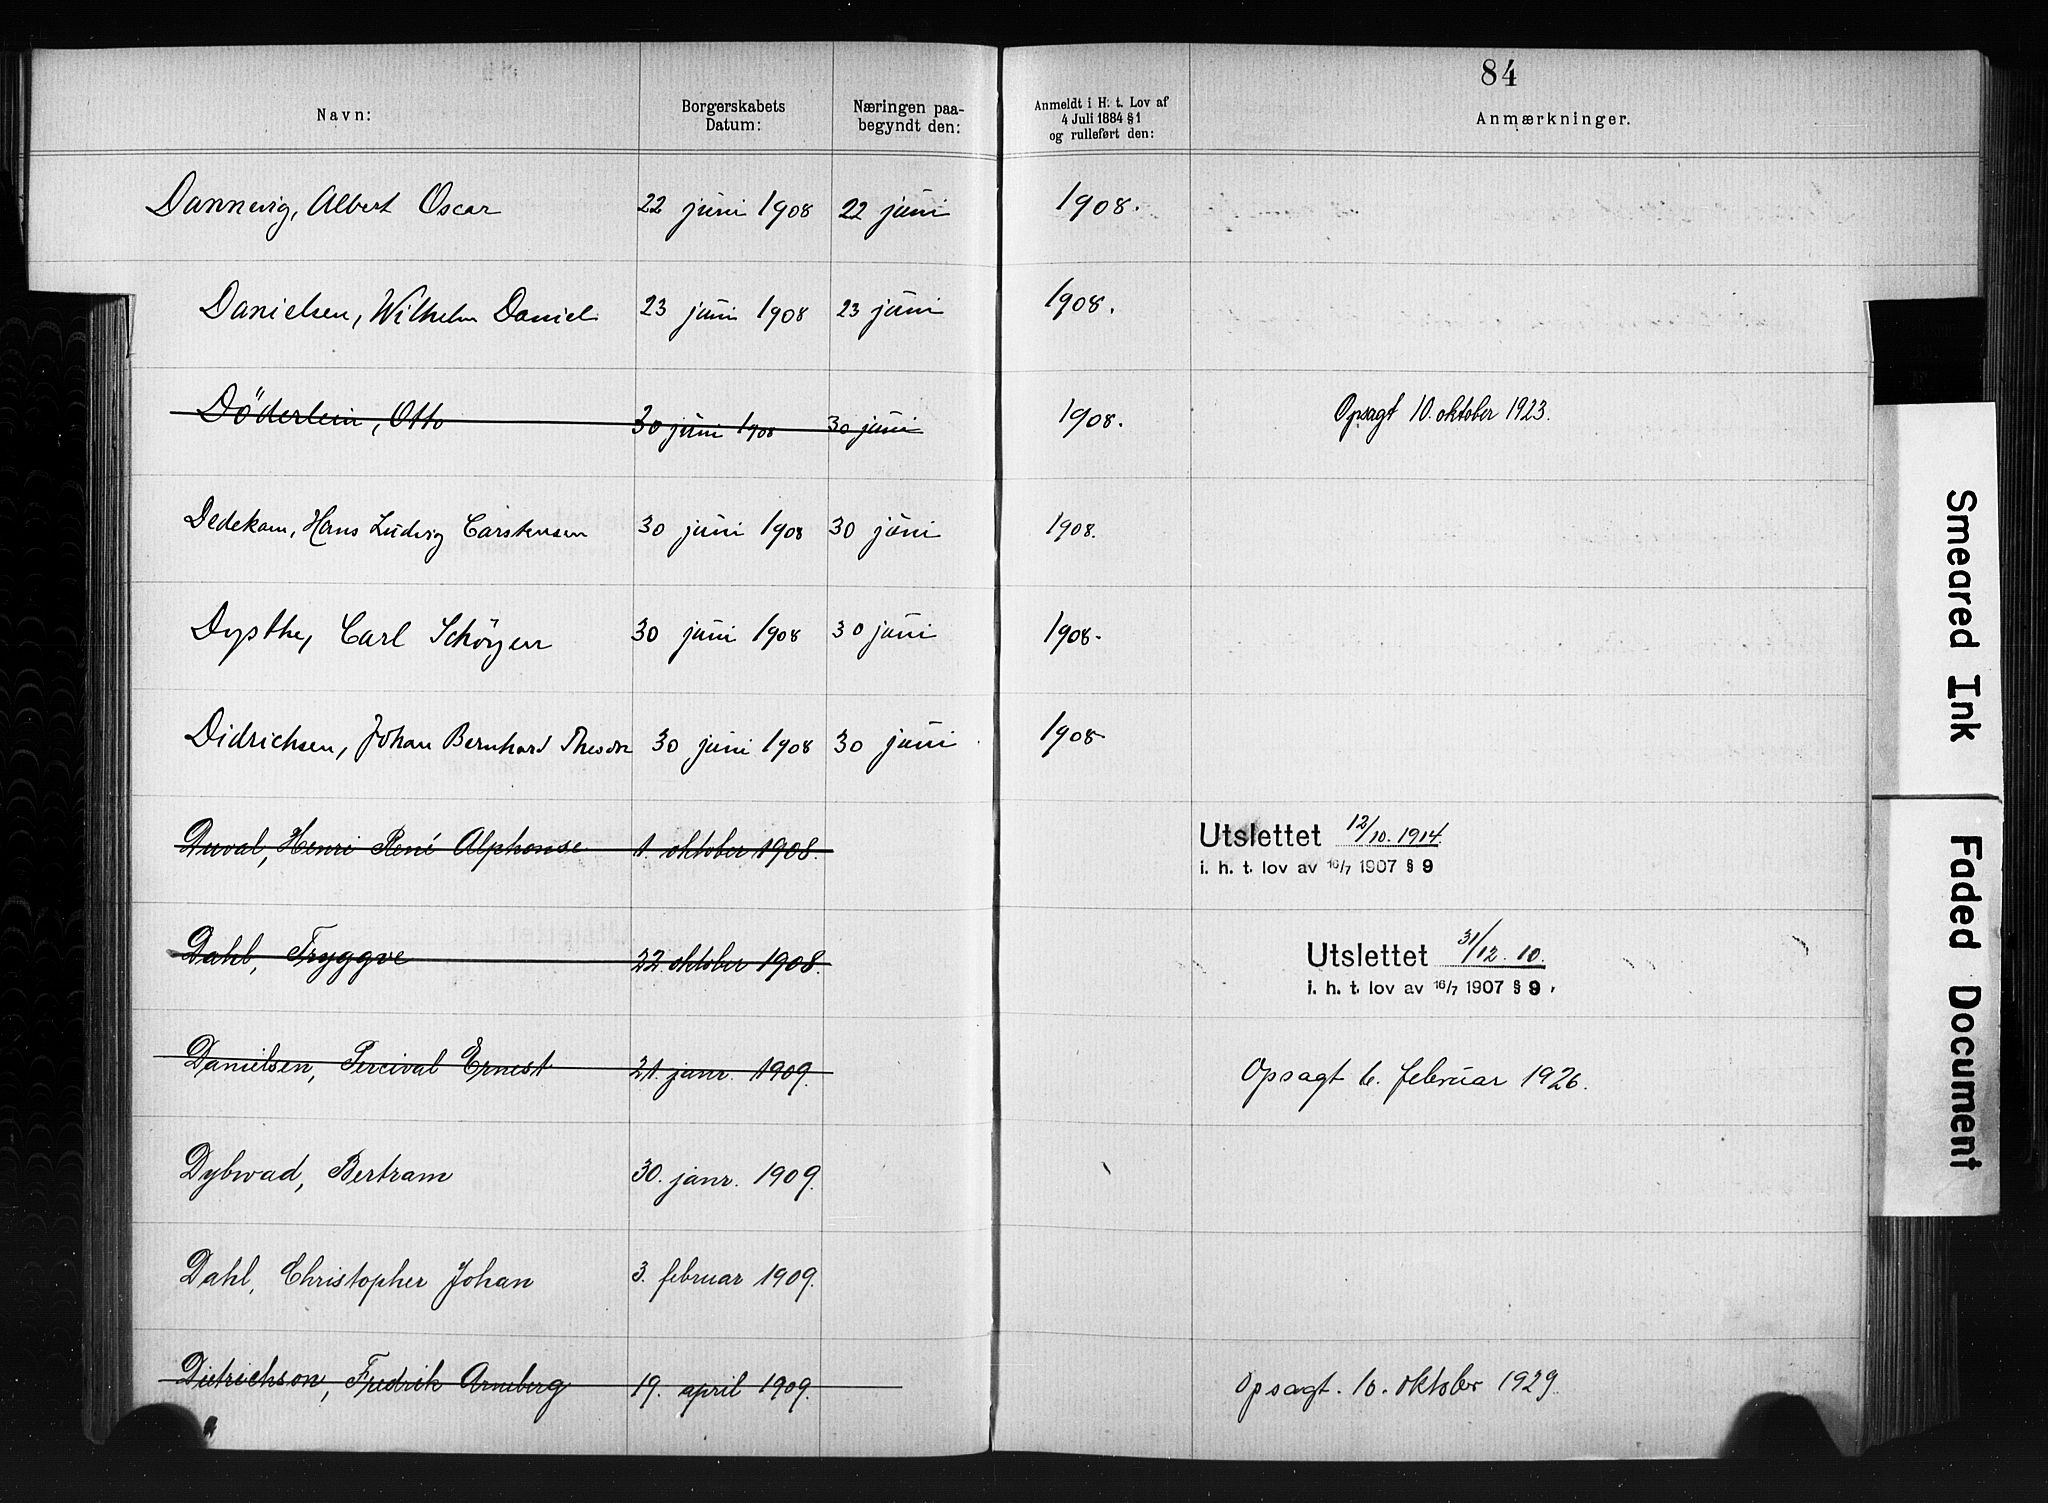 84
Navn: Borgerskabets Datum: Næringen paa-begyndt den: Anmeldt i H. t. Lov af 4 Juli 1884 § 1 og rulleført den: Anmærkninger.
Dannevig, Albert Oscar 22 juni 1908 22 juni 1908.
Danielsen, Wilhelm Daniel 23 juni 1908 23 juni 1908.
Döderlein, Otto 30 juni 1908 30 juni 1908. Opsagt 10. oktober 1923.
Dedekam, Hans Ludvig Carstensen 30 juni 1908 30 juni 1908.
Dysthe, Carl 30 juni 1908 30 juni 1908.
Didrichsen, Johan Bernhard 30 juni 1908 30 juni 1908
Duval, Henri René Alphonse 1. oktober 1908. Utslettet 12/10. 1914.
i. h. t. lov av 16/7 1907 § 9
Dahl, Tryggve 22. oktober 1908. Utslettet 31/12. 10.
i. h. t. lov av 16/7 1907 § 9
Danielsen, Percival Ernest 21. janr. 1909. Opsagt 6. februar 1926.
Dybwad, Bertram 30. janr. 1909.
Dahl, Christopher Johan 3. februar 1909.
Dietrichson, Fredrik Arneberg 19. april 1909. Opsagt. 10. oktober 1929.
Smeared Ink
Faded Document